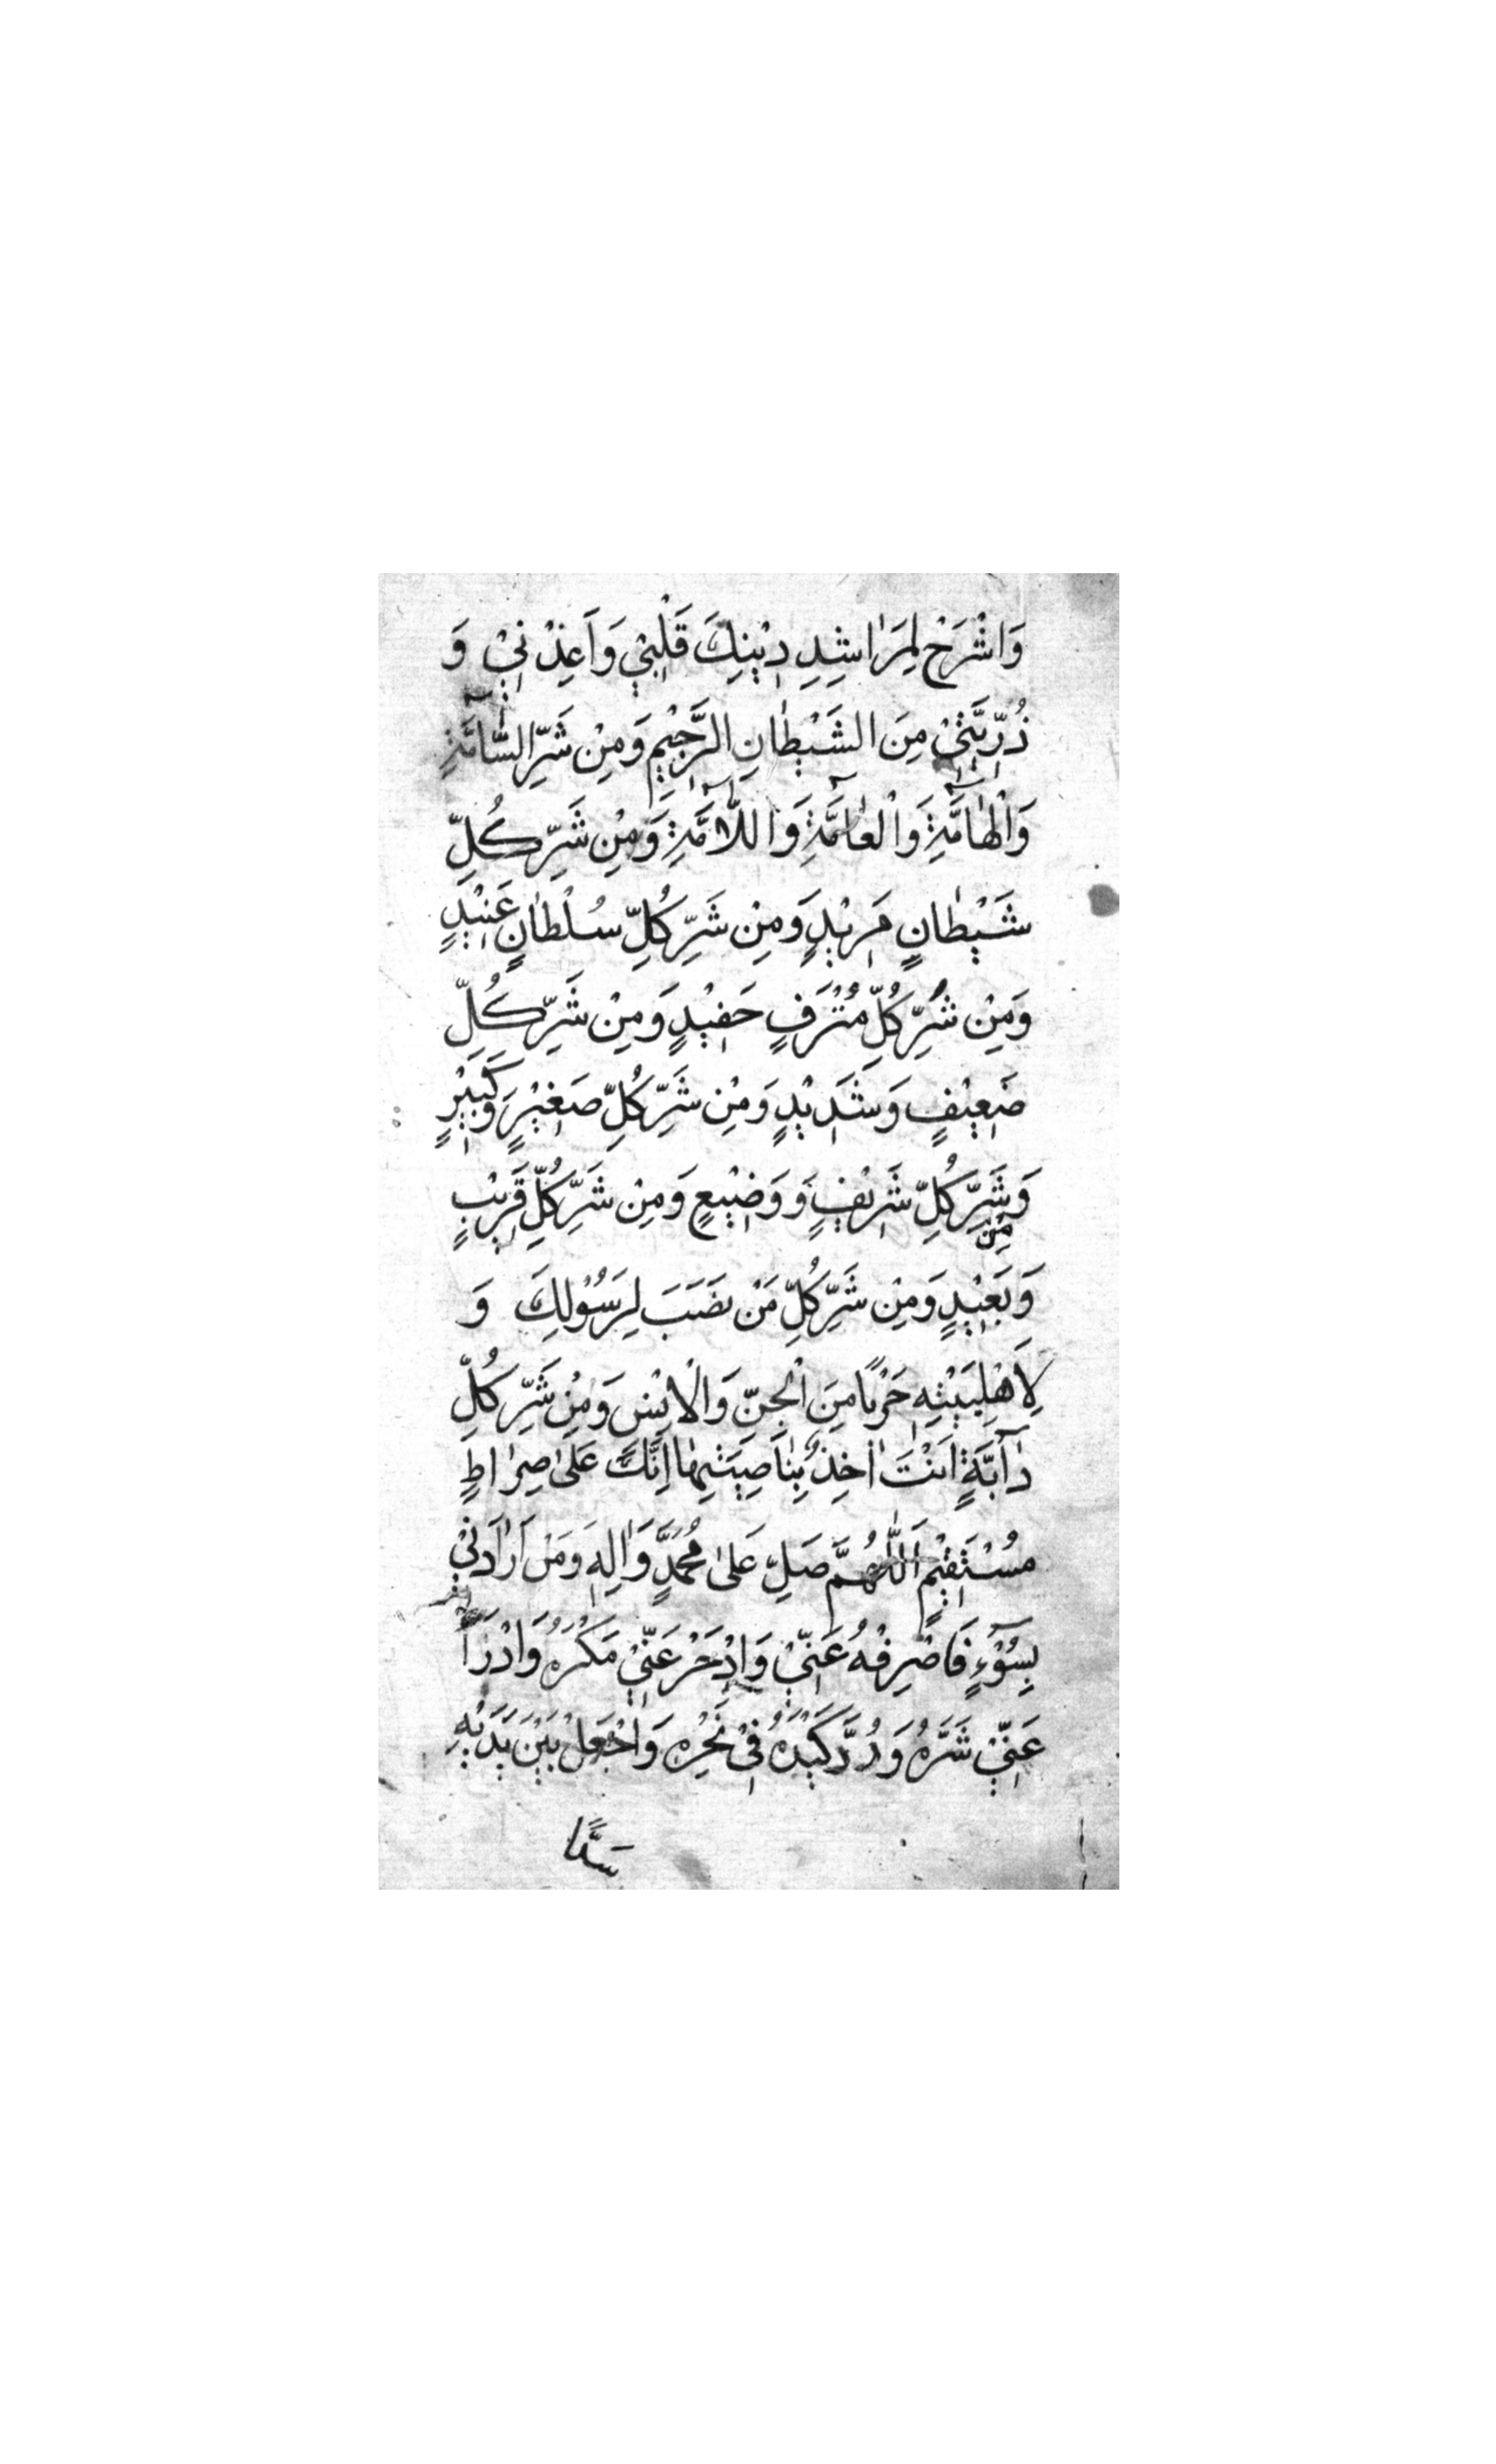 وَاشْرَحْ لِمَرَاشِدِ دِيْنِكَ قَلْبِيْ وَاَعِذْنِيْ وَ
ذُرِّيَّتِيْ مِنَ الشَّيْطٰانِ الرَّجِيْمِ وَمِنْ شَرِّ السّٰآمَّةِ
وَالْهٰآمَّةِ وَالْعٰآمَّةِ وَاللّٰآمَّةِ وَمِنْ شَرِّ كُلِّ
شَيْطٰانٍ مَرِيْدٍ وَمِنْ شَرِّ كُلِّ سُلْطٰانٍ عَنِيْدٍ
وَمِنْ شَرِّ كُلِّ مُتْرَفٍ حَفِيْدٍ وَمِنْ شَرِّ كُلِّ
ضَعِيْفٍ وَشَدِيْدٍ وَمِنْ شَرِّ كُلِّ صَغِيْرٍ وَكَبِيْرٍ
وَمِنْ شَرِّ كُلِّ شَرِيْفٍ وَوَضِيْعٍ وَمِنْ شَرِّ كُلِّ قَرِيْبٍ
وَبَعِيْدٍ وَمِنْ شَرِّ كُلِّ مَنْ نَصَبَ لِرَسُوْلِكَ وَ
لِاَهْلِبَيْتِهٖ حَرْبًا مِنَ الْجِنِّ وَالْاِنْسِ وَمِنْ شَرِّ كُلِّ
دٰآبَّةٍ اَنْتَ اٰخِذٌ بِنٰاصِيَتِهٰا اِنَّكَ عَلىٰ صِرٰاطٍ
مُسْتَقِيْمٍ اَللّٰهُمَّ صَلِّ عَلىٰ مُحَمَّدٍ وَاٰلِهِ وَمَنْ اَرٰادَنِيْ
بِسُوْٓءٍ فَاصْرِفْهُ عَنِّيْ وَادْحَرْ عَنِّيْ مَكْرَهُ وَادْرَأْ
عَنِّيْ شَرَّهُ وَرُدَّ كَيْدَهُ فِيْ نَحْرِهٖ وَاجْعَلْ بَيْنَ يَدَيْهِ
سَدًّا